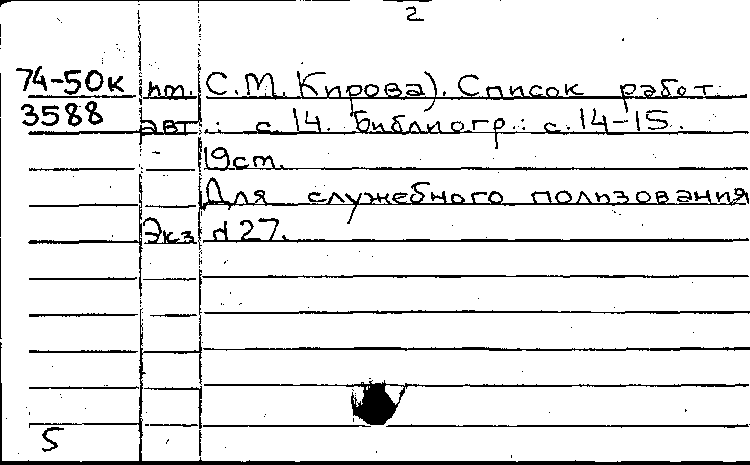 2
74-50к пт. С.М. Кирова). Список работ
3588 авт.: с. 14. Библиогр.: с. 14-15.
19 ст.
Для служебного пользования
Экз № 27.
5